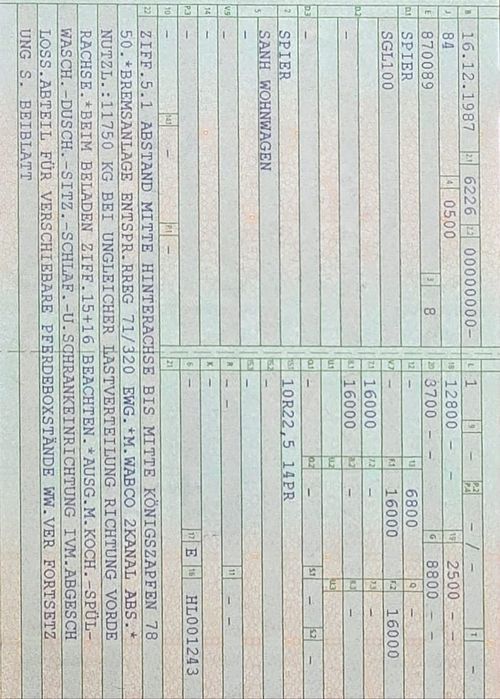 B 16.12.1987 2.1 6226 2.2 00000000- L 1 9 - P.2 P.4 - / - T -
J 84 4 0500 18 12800 - - 19 2500 - -
E 870089 3 8 20 3700 - - G 8800 -
D.1 SPIER 12 - 13 6800 Q -
SGL100 V.7 - F.1 16000 F.2 16000
7.1 16000 7.2 - 7.3 -
D.2 - 8.1 16000 8.2 - 8.3 -
U.1 - U.2 - U.3 -
D.3 - O.1 - O.2 - S.1 - S.2 -
2 SPIER 15.1 10R22,5 14PR
5 SANH WOHNWAGEN 15.2 -
- 15.3 -
V.9 - R - - 11 - -
14 - K -
P.3 - 6 - 17 E 16 HL001243
10 - 14.1 - P.1 - 21 -
22 ZIFF.5.1 ABSTAND MITTE HINTERACHSE BIS MITTE KÖNIGSZAPFEN 78
50.*BREMSANLAGE ENTSPR.RREG 71/320 EWG.*M.WABCO 2KANAL ABS-*
NUTZL.:11750 KG BEI UNGLEICHER LASTVERTEILUNG RICHTUNG VORDE
RACHSE.*BEIM BELADEN ZIFF.15+16 BEACHTEN.*AUSG.M.KOCH.-SPÜL-
WASCH.-DUSCH.-SITZ.-SCHLAF.-U.SCHRANKEINRICHTUNG IVM.ABGESCH
LOSS.ABTEIL FÜR VERSCHIEBARE PFERDEBOXSTÄNDE WW.VER FORTSETZ
UNG S. BEIBLATT